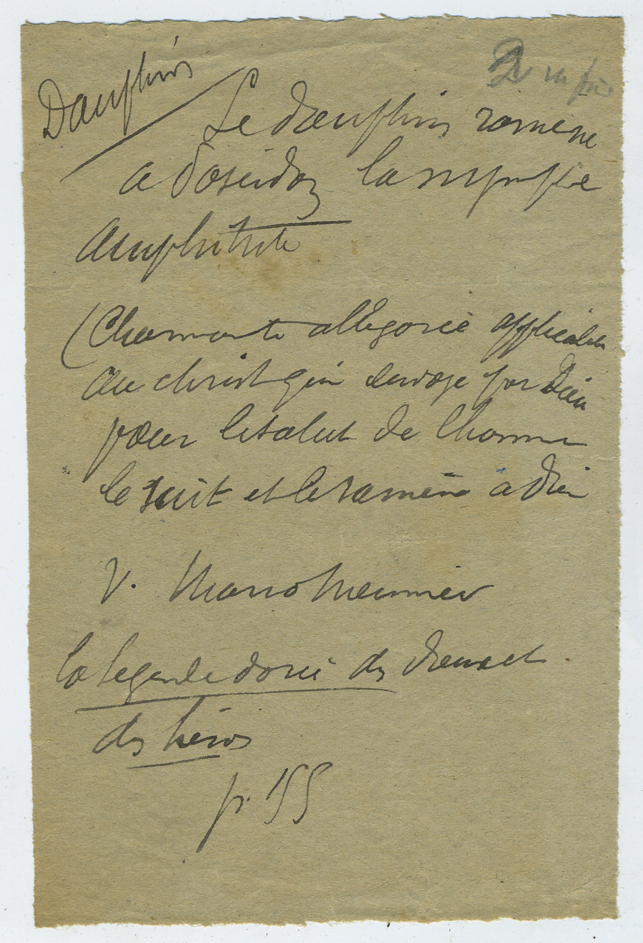 Dauphin
Le dauphin ramène
a Poseidon la nymphe
Amphitrite
(Charmante allégorie applicable
au christ qui envoyé par Dieu
pour le salut de l'homme
le suit et le ramène à dieu
V. Mario Meunier
la legende dorée des dieux et
des héros
p. 155